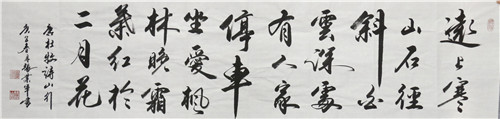 遠上寒
山石徑
斜白
雲深處
有人家
停車
坐愛楓
林晚霜
葉紅於
二月花
唐杜牧詩山行